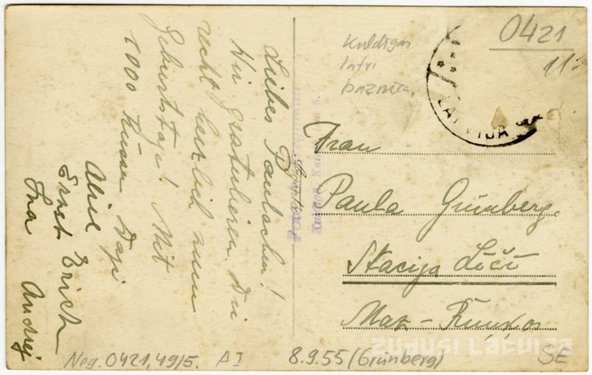 Liebes Paulachen!
Wir gratulieren Dir
recht herzlich zum
Geburtstag! Mit
1000 Küssen
Alice
Ernst Erich
Ina Andrej
Kuldīgas
baznīca
0421
LATVIJA
Frau
Paula Grünberg
Stacija Līči
Neg. 0421,49/5. AI
8.9.55 (Grünberg)
SE
ZUDUSĪ LATVIJA